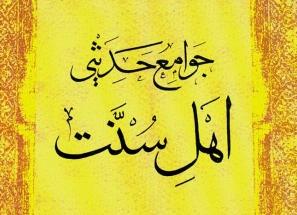 جوامع حَدیثی
اهلِ سُنَّت